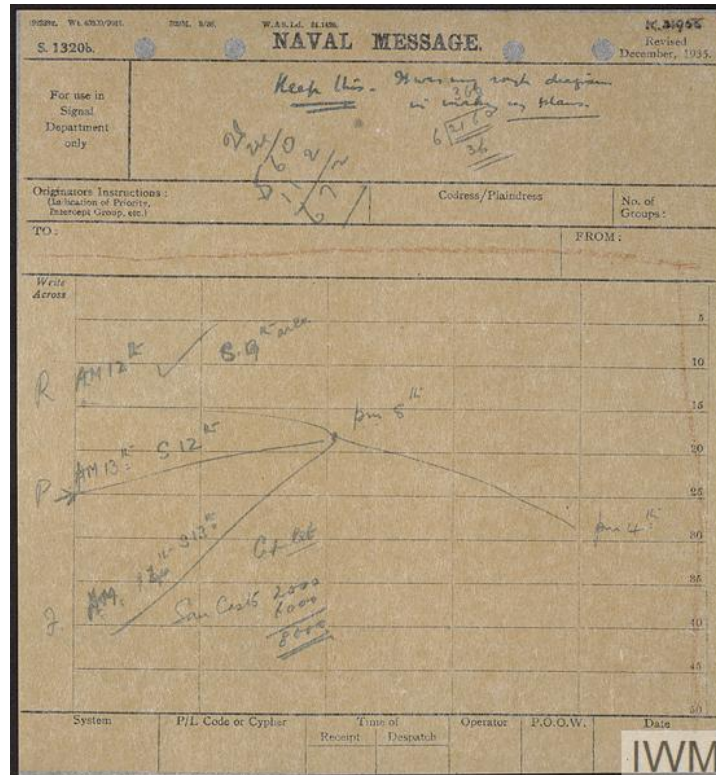 S. 1320b.
NAVAL MESSAGE.
Revised
December, 1935.
For use in
Signal
Department
only
Keep this. It was my rough diagram
in making my plans.
360
6 2160
36
Originators Instructions:
(Indication of Priority,
Intercept Group, etc.)
Codress/Plaindress
No. of
Groups:
TO:
FROM:
Write
Across
5
S. 9th area
10
R AM 12th
15
pm 5th
20
AM 13th S 12th
P
25
pm 4th
30
S 13th
35
2000
6000
8000
40
45
50
System
P/L Code or Cypher
Time of
Receipt
Despatch
Operator
P.O.O.W.
Date
IWM